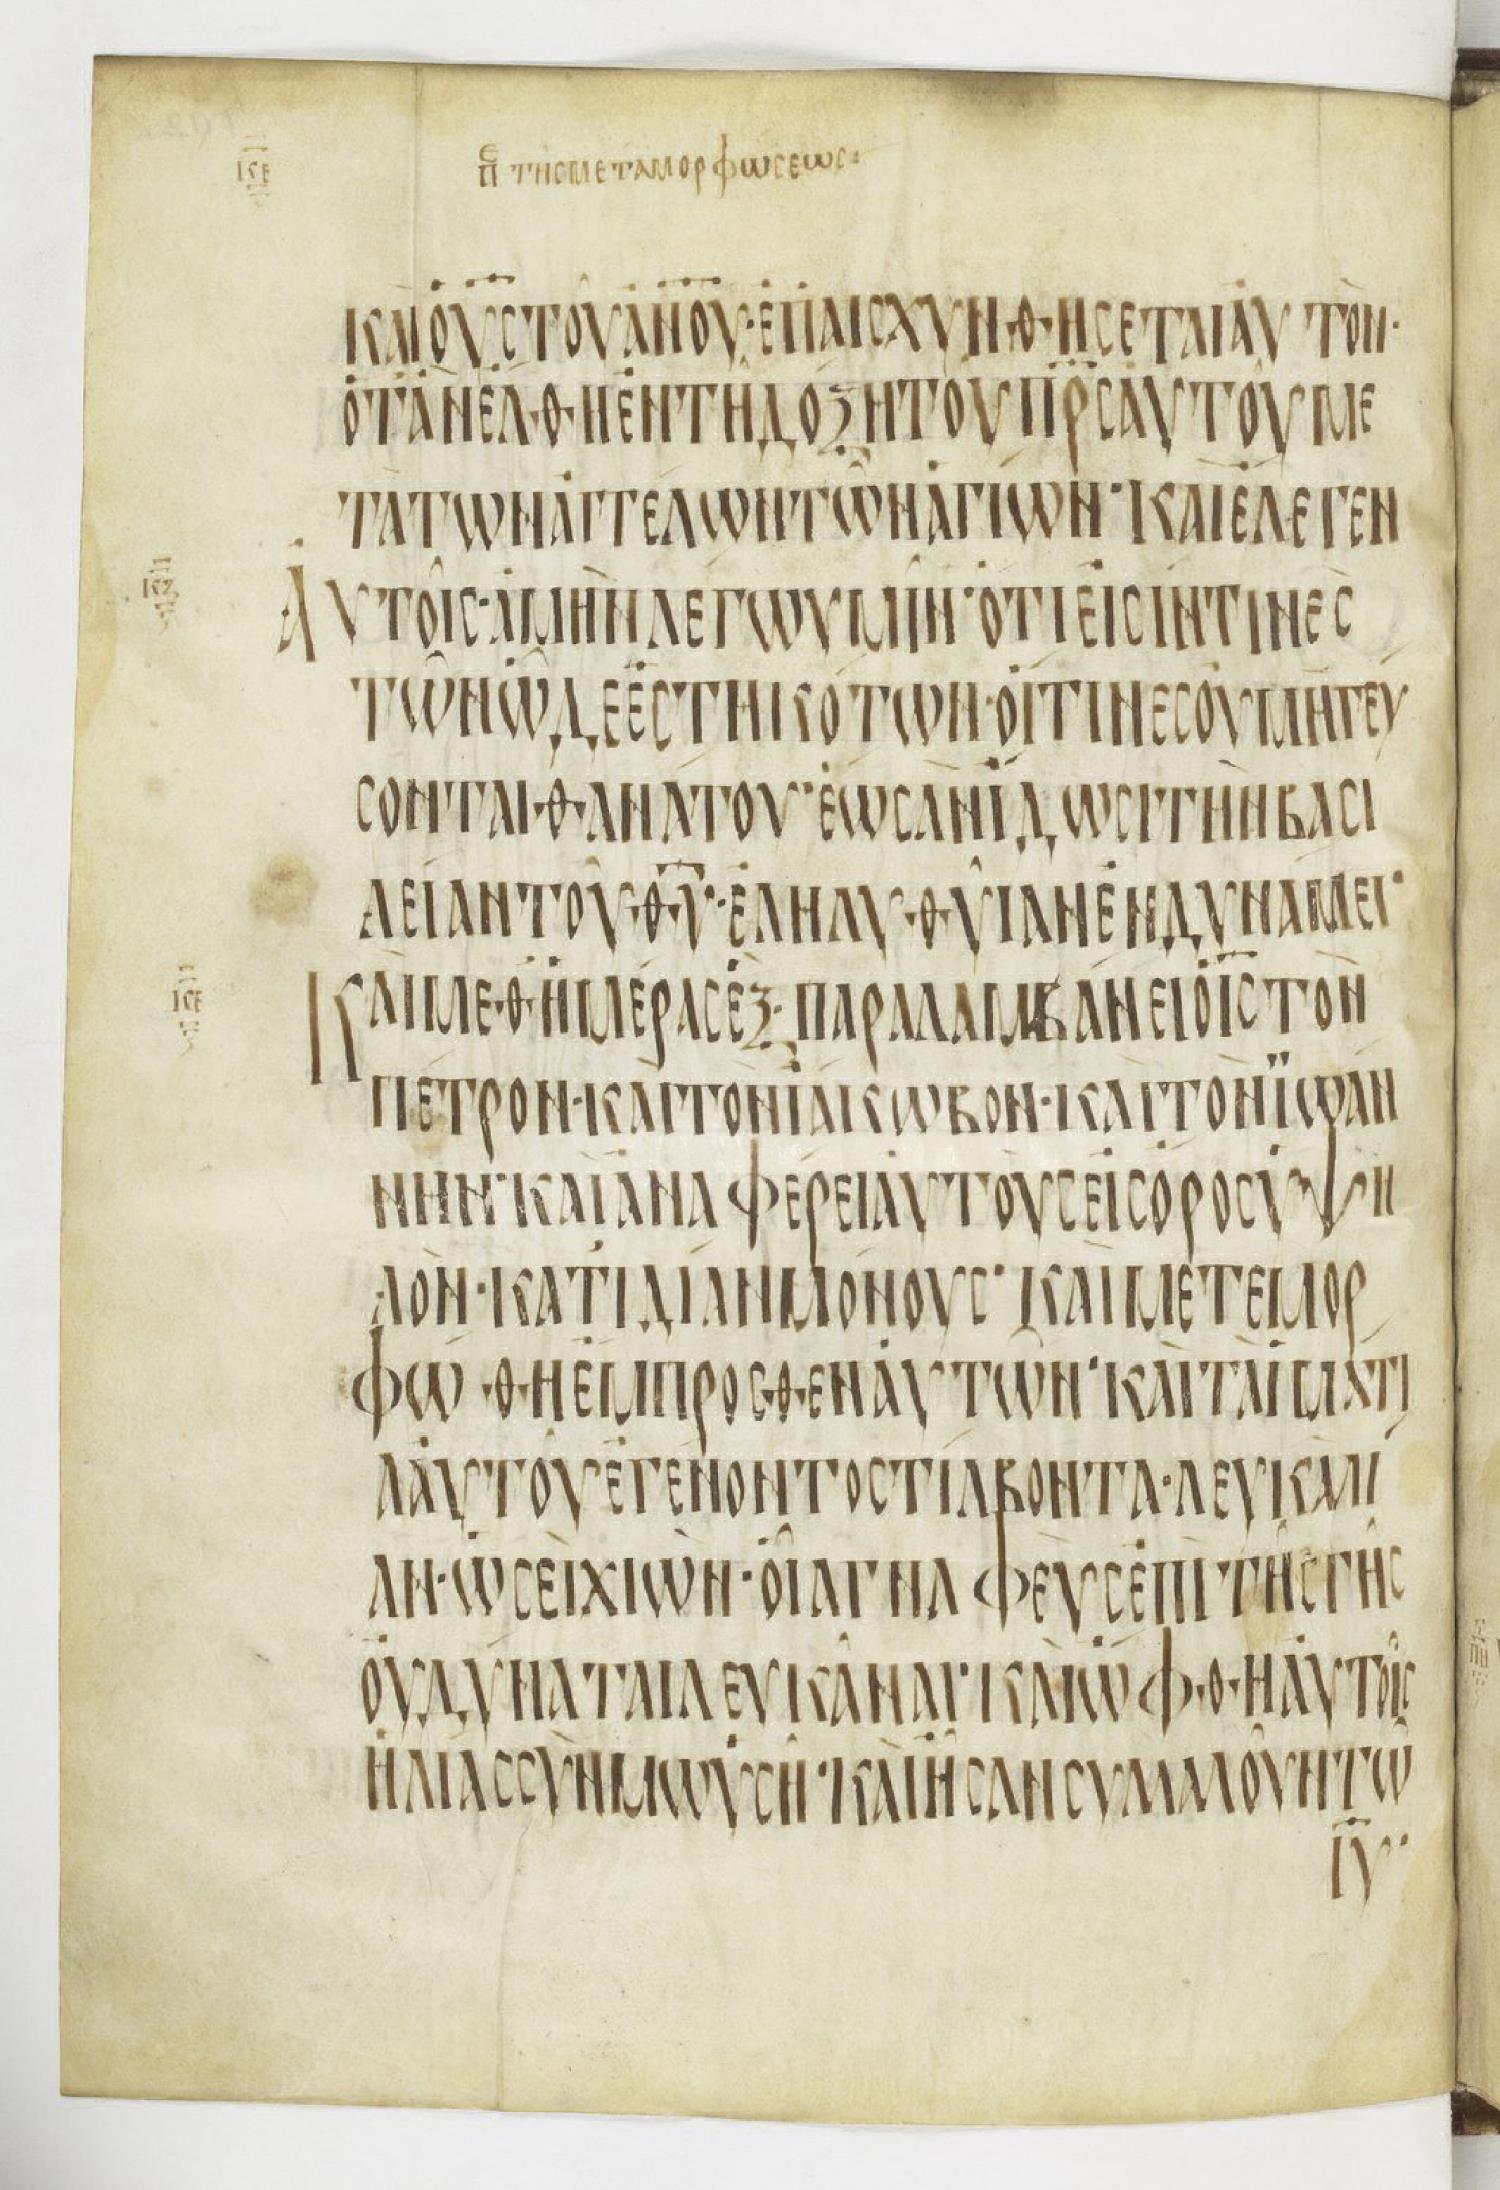 ΠΕ ΤΗϹ ΜΕΤΑΜΟΡΦΩϹΕΩϹ:
ΚΑΙ Ὁ Υ̅Ϲ̅ ΤΟΥ͂ Α̅Ν̅Ο̅Υ̅· ἘΠΑΙϹΧΥΝΘΗϹΕΤΑΙ ἈΥΤῸΝ·
ὉΤᾺΝ ἘΛΘΗ ἘΝ ΤΗ͂ ΔΟΞΗ ΤΟΥ͂ Π̅Ρ̅Ϲ̅ ἈΥΤΟΥ͂ ΜΕ
ΤᾺ ΤΩΝ ἈΓΓΕΛΩΝ ΤΩ͂Ν ἉΓΊΩΝ· ΚΑῚ ἘΛΕΓΕΝ
ἈΥΤΟΙ͂Ϲ· ἈΜΗΝ ΛΈΓΩ ΥΜΙ͂Ν· ὉΤΙ ἘΙϹῚΝ ΤΙΝΕϹ
ΤΩ͂Ν Ὧ͂ΔΕ ἙϹΤΗΚΌΤΩΝ· ὉΙΤΙΝΕϹ ὈΥ ΜῊ ΓΕΥ
ϹΟΝΤΑΙ ΘΑΝΑΤΟΥ· ἙΩϹ ΑΝ ἸΔΩϹΙ ΤΗΝ ΒΑϹΙ
ΛΕΊΑΝ ΤΟΥ͂ Θ̅Υ̅· ἘΛΗΛΥΘΥΙ͂ΑΝ ἘΝ ΔΥΝΆΜΕΙ·
ΚΑΙ ΜΕΘ ἩΜΈΡΑϹ ἙΞ· ΠΑΡΑΛΑΜΒΆΝΕΙ Ὁ Ι̅Ϲ̅ ΤῸΝ
ΠΈΤΡΟΝ· ΚΑῚ ΤῸΝ ἸΆΚΩΒΟΝ· ΚΑῚ ΤῸΝ ΪΩΆΝ
ΝΗΝ· ΚΑῚ ἈΝΑΦΈΡΕΙ ἈΥΤΟΥϹ ἘΙϹ ὌΡΟϹ ὙΨΗ
ΛῸΝ· ΚΑΤ’ ἸΔΊΑΝ ΜΌΝΟΥϹ· ΚΑῚ ΜΕΤΕΜΟΡ
ΦΩΘΗ ἘΜΠΡΟϹΘΕΝ ἈΥΤΩ͂Ν· ΚΑῚ ΤᾺ ἹΜΆΤΙ
Α ἈΥΤΟΥ͂ ἘΓΈΝΟΝΤΟ ϹΤΊΛΒΟΝΤΑ· ΛΕΥΚΑ ΛΙ
ΑΝ· ὩϹΕῚ ΧΙῺΝ· ὉΙ͂Α ΓΝΑΦΕΥϹ ἘΠῚ ΤΗ͂Ϲ ΓΗ͂Ϲ
ὈΥ ΔΎΝΑΤΑΙ ΛΕΥΚΑ͂ΝΑΙ· ΚΑῚ ὨΦΘΗ ἈΥΤΟΙ͂Ϲ
ἩΛΊΑϹ ϹῪΝ ΜΩΥϹΗ͂· ΚΑῚ ἨϹΑΝ ϹΥΛΛΑΛΟΥ͂ΝΤΩ͂
Ι̅Υ̅·